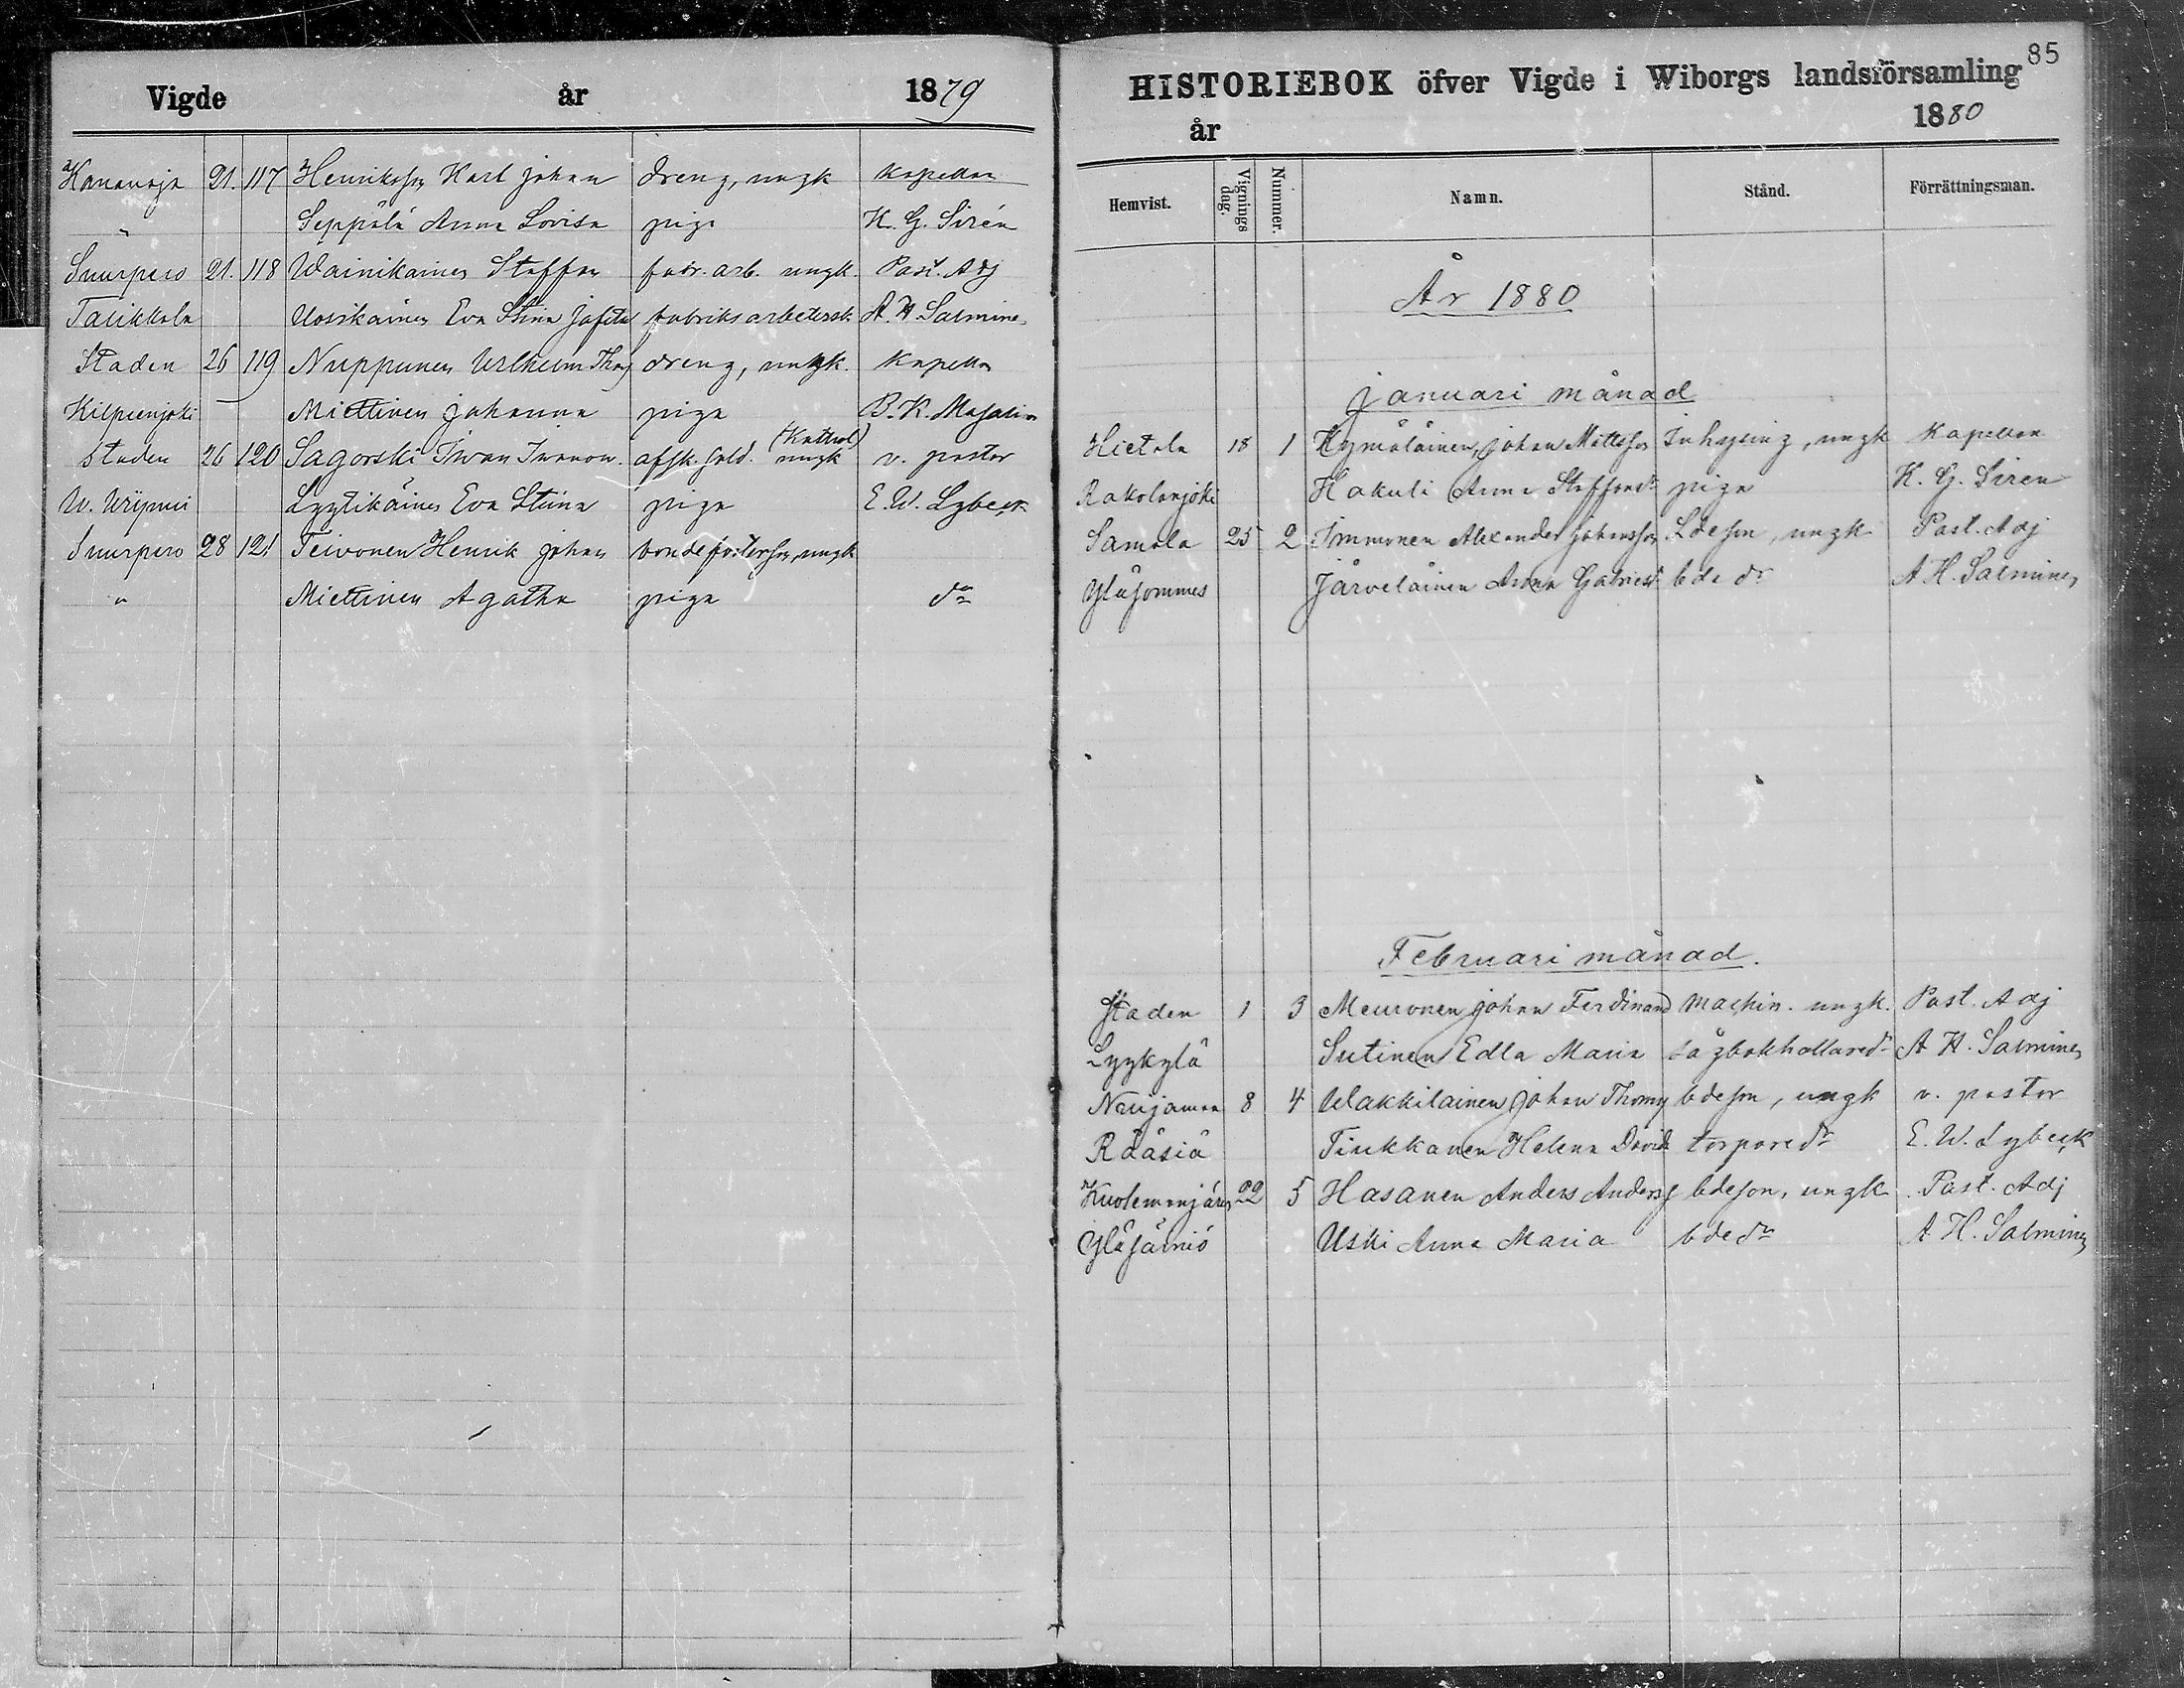 Vigde år 1879
Kananoja 21. 117 Henriksson Karl Johan dreng, ungk kapellan
" Seppälä Anna Lovisa piga K. G. Sirén
Suurpero 21. 118 Wainikainen Staffan fabr. arb. ungk. Past. Adj
Talikkala Uosikainen Eva Stina fabriksarbetersk. A. H. Salminen
Staden 26 119 Nuppunen Wilhelm Thom dreng, ungk. Kapellan
Kilpeenjoki Miettinen Johanna piga B. K. Masalin
(Kathol)
Staden 26 120 Sagorski Iwan Iwanow. afsk. sold. ungk v. pastor
Lyytikäinen Eva Stiina piga E. W. Lybeck
Suurpero 28 121 Teivonen Henrik Johan bondefosterson, ungk
" Miettinen Agatha piga do
85
HISTORIEBOK öfver Vigde i Wiborgs landsförsamling
år 1880
Hemvist. Vignings dag. Nummer. Namn. Stånd. Förrättningsman.
År 1880
Januari månad
Hietala 18 1 Kymäläinen, Johan Mattsson Inhysing, ungk Kapellan
Rakolanjoki Hakuli Anna Staffansdr piga K. G. Siren
Samola 25 2 Immonen Alexander Johansson Ldeson, ungk Past. Adj
Yläsommes Järveläinen Anna Gabrielsd bde dr A H. Salminen
Februari månad.
Staden 1 3 Meuronen Johan Ferdinand Maskin. ungk. Past. Adj
Lyykylä Sutinen Edla Maria sågbokhållaredr A H. Salminen
Nuijamaa 8 4 Wakkilainen Johan Thom bdeson, ungk v. pastor
Rääsiä Tiukkanen Helena David torparedr E. W. Lybeck
Kuolemanjärvi 22 5 Hasanen Anders Anderss bdeson, ungk Past. Adj
Yläsäiniö Uski Anna Maria bdedr A H. Salminen